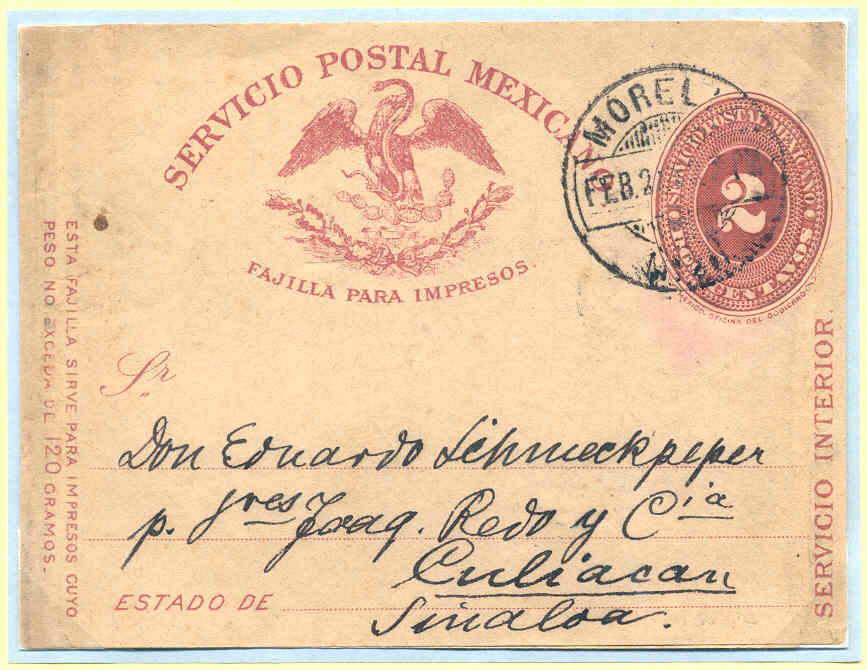 SERVICIO POSTAL MEXICANO
FAJILLA PARA IMPRESOS.
MOREL
FEB. 2
SERVICIO POSTAL MEXICANO
2
CENTAVOS
MEXICO, OFICINA DEL GOBIERNO
ESTA FAJILLA SIRVE PARA IMPRESOS CUYO
PESO NO EXCEDA DE 120 GRAMOS.
Sr
Don Eduardo Schmeckpeper
p. Sres Joaq. Redo y Cia
Culiacan
ESTADO DE Sinaloa.
SERVICIO INTERIOR.